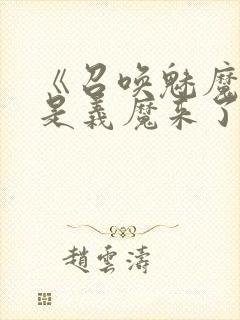 《召喚魅魔
是義魔來了
趙雲濤